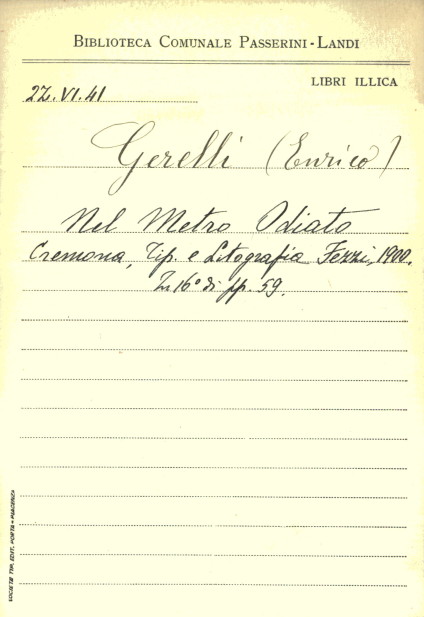 BIBLIOTECA COMUNALE PASSERINI-LANDI
LIBRI ILLICA
22.VI.41
Gerelli (Enrico)
Nel Metro Odiato
Cremona, Tip. e Litografia Fezzi, 1900.
In 16° di pp. 59.
SOCIETÀ TIP. EDIT. PORTA - PIACENZA